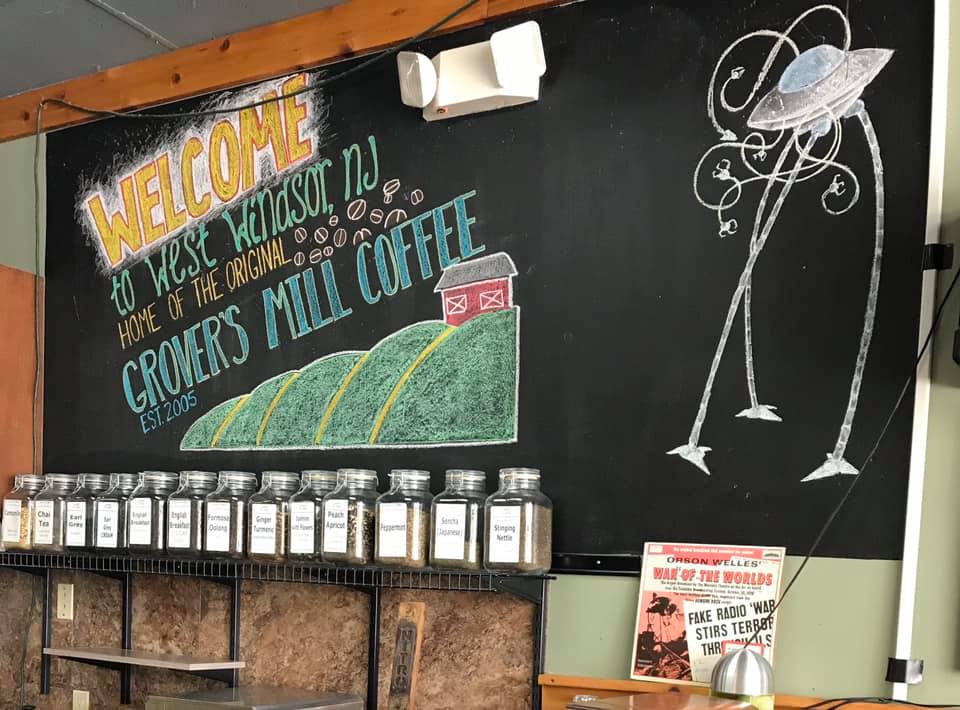 WELCOME
to West Windsor, NJ
HOME OF THE ORIGINAL
GROVER'S MILL COFFEE
EST. 2005
Chai Tea
Earl Grey
Earl Grey CREAM
English Breakfast
English Breakfast
Formosa Oolong
Ginger Turmeric
Jasmine
Peach Apricot
Peppermint
Sencha (Japanese)
Stinging Nettle
ORSON WELLES'
WAR OF THE WORLDS
FAKE RADIO 'WAR
STIRS TERROR
THROUGH U.S
NITRO